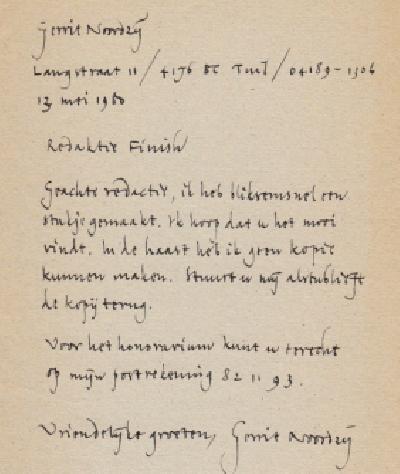 Gerrit Noordzij
Langstraat 11 / 4176 BC Tuil / 04189-1306
13 mei 1980
Redaktie Finish
Geachte redactie, ik heb bliksemsnel een
stukje gemaakt. Ik hoop dat u het mooi
vindt. In de haast heb ik geen kopie
kunnen maken. Stuurt u mij alstublieft
de kopij terug.
Voor het honorarium kunt u terecht
op mijn portrekening 82 11 93.
Vriendelijke groeten, Gerrit Noordzij